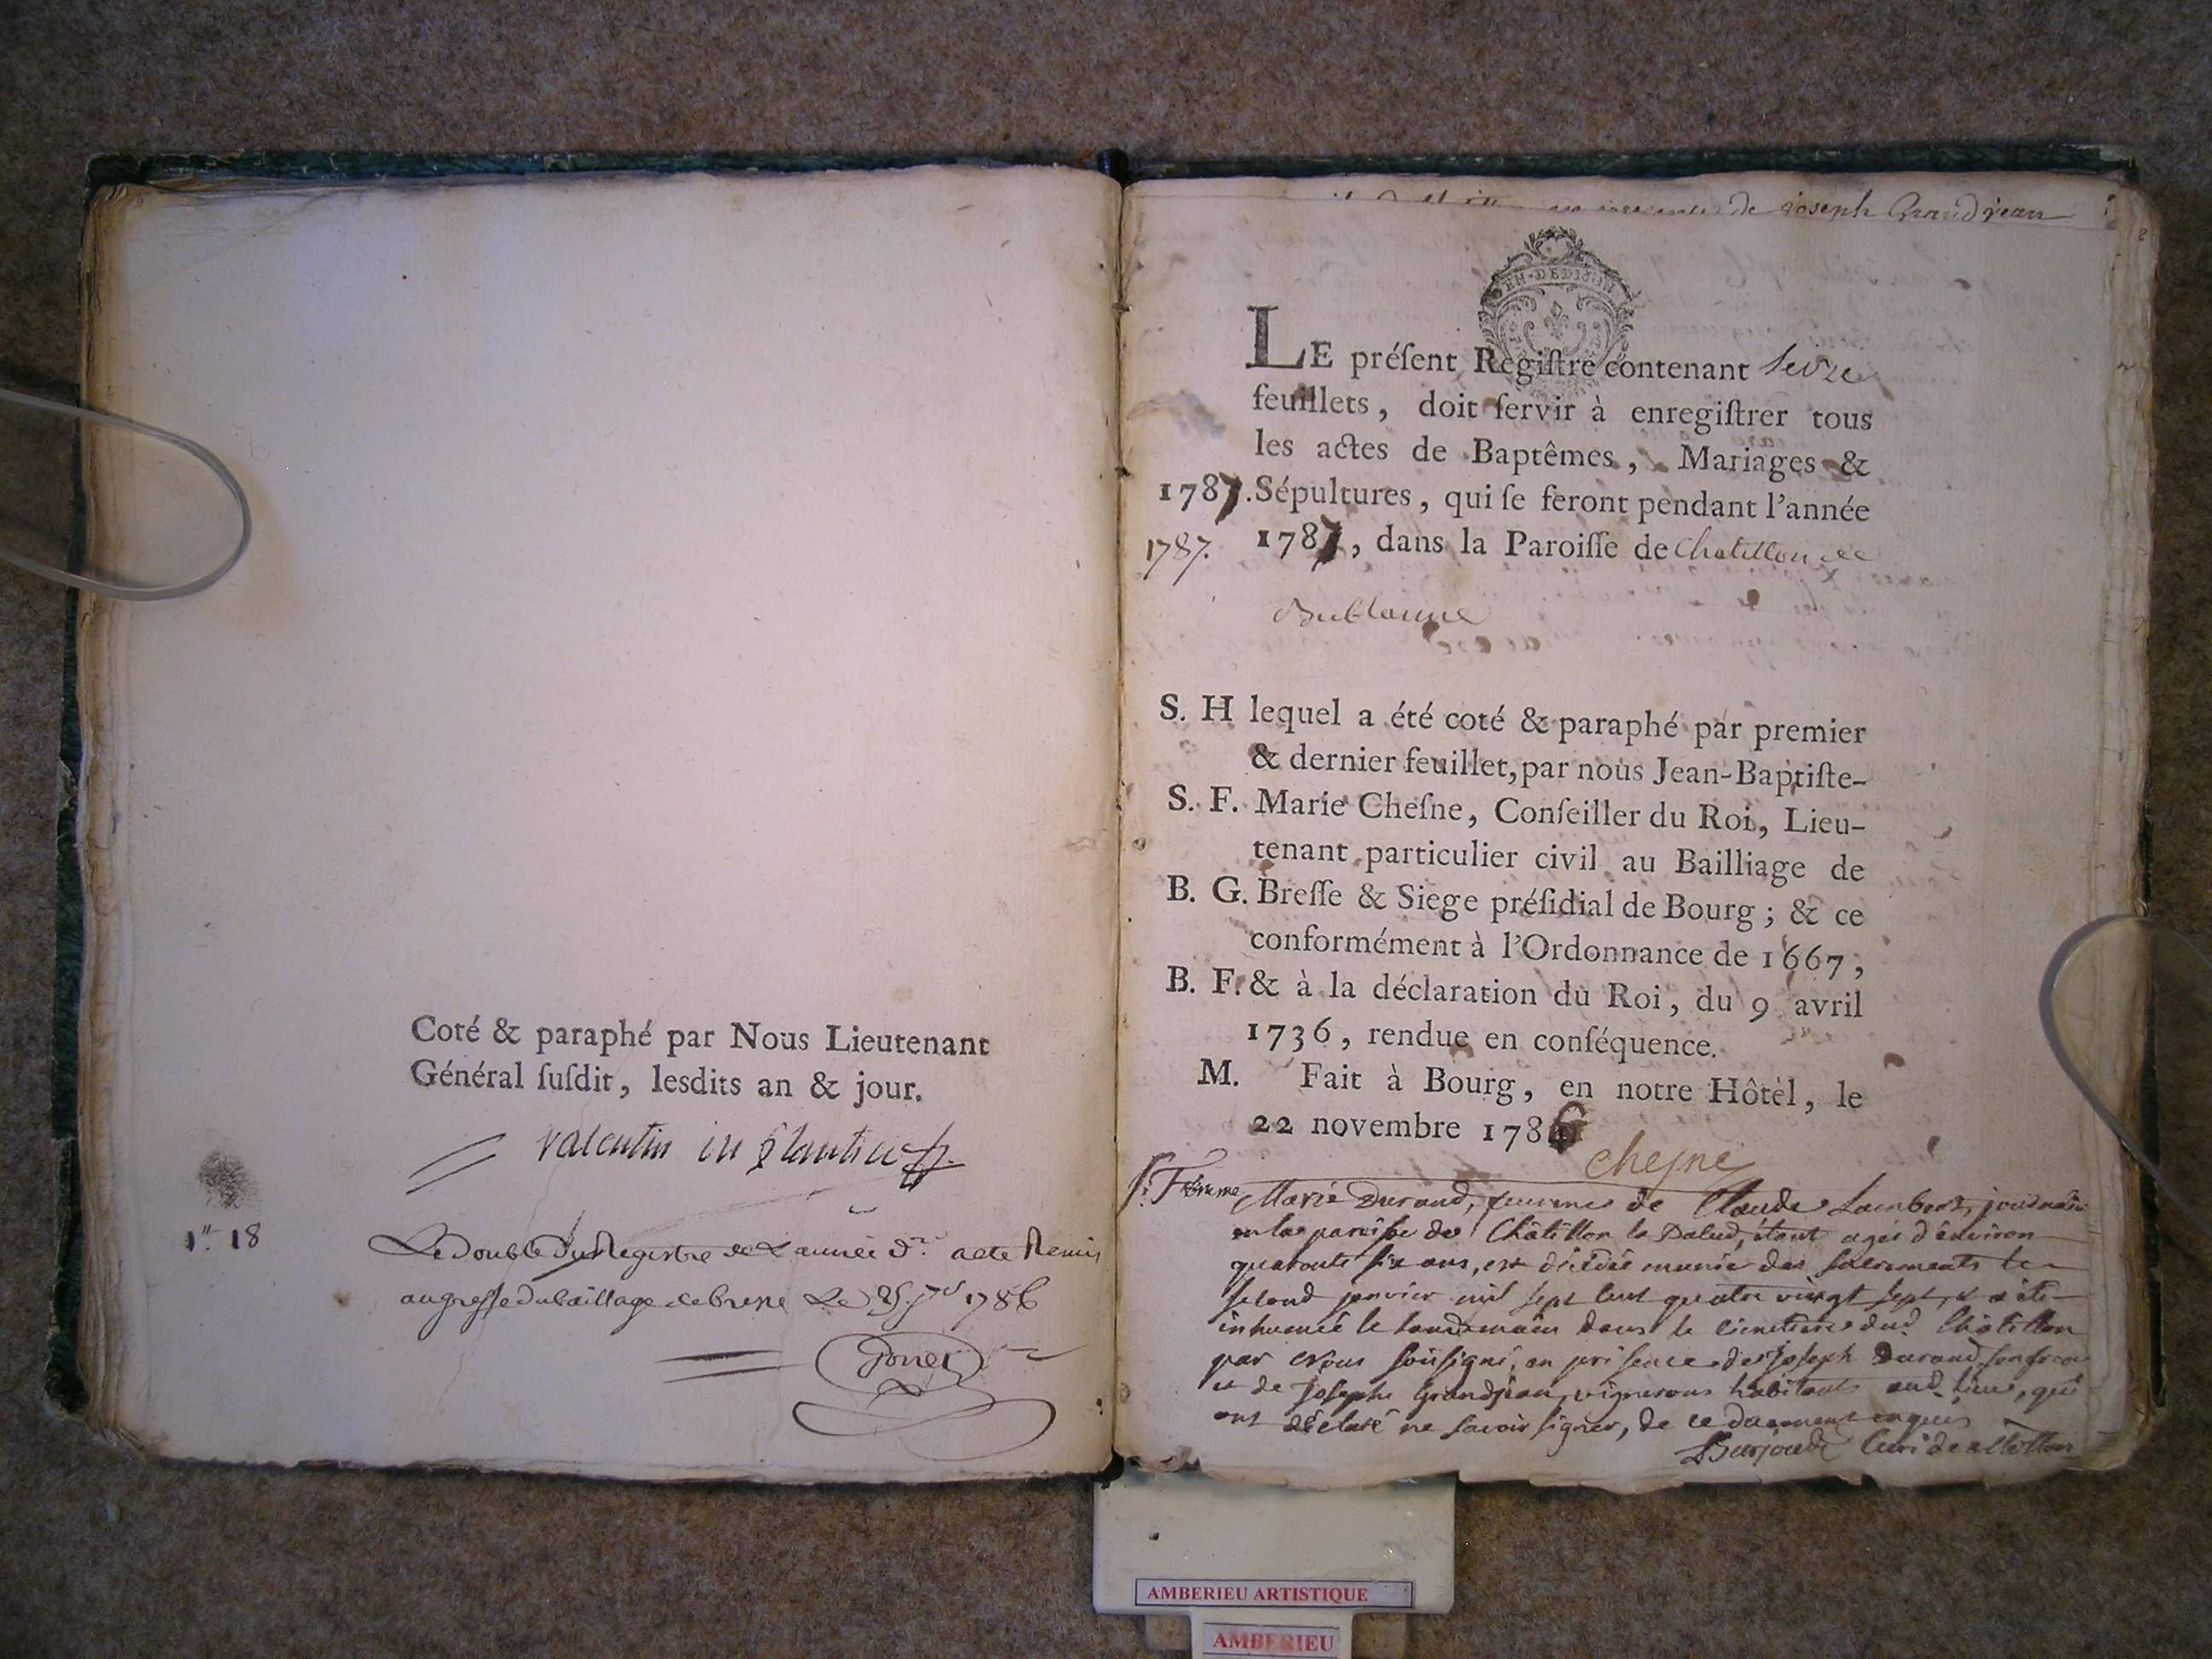 Coté & paraphé par Nous Lieutenant
Général ſuſdit, lesdits an & jour.
valentin du plantier
1." 18
Le Double du Registre de L'année d.re a ete Remis
au greffe du baillage de bresse Le 25. j.er 1786
de joseph Grandjean
EN·DE DIJON
LE préſent Regiſtre contenant seize
feuillets, doit ſervir à enregiſtrer tous
les actes de Baptêmes, Mariages &
1787. Sépultures, qui ſe feront pendant l'année
1787. 1787, dans la Paroiſſe de Chatillon de
S. H lequel a été coté & paraphé par premier
& dernier feuillet, par nous Jean-Baptiſte-
S. F. Marie Cheſne, Conſeiller du Roi, Lieu-
tenant particulier civil au Bailliage de
B. G. Breſſe & Siege préſidial de Bourg; & ce
conformément à l'Ordonnance de 1667,
B. F. & à la déclaration du Roi, du 9 avril
1736, rendue en conſéquence.
M. Fait à Bourg, en notre Hôtel, le
22 novembre 1786
Chesne
S. Femme Marie Durand, femme de Claude Lambert, journalier
en la paroisse de Châtillon la Palud, étant agée d'environ
quarante six ans, est décédée munie des sacrements le
second janvier mil sept cent quatre vingt sept, & a été
inhumée le lendemain dans le cimetiere dud. Châtillon
par Nous soussigné, en presence de Joseph Durand, son frere
et de Josephe Grandjean, vignerons habitants aud. lieu, qui
ont déclaré ne savoir signer, de ce duement enquis
Curé de Châtillon
AMBERIEU ARTISTIQUE
AMBERIEU